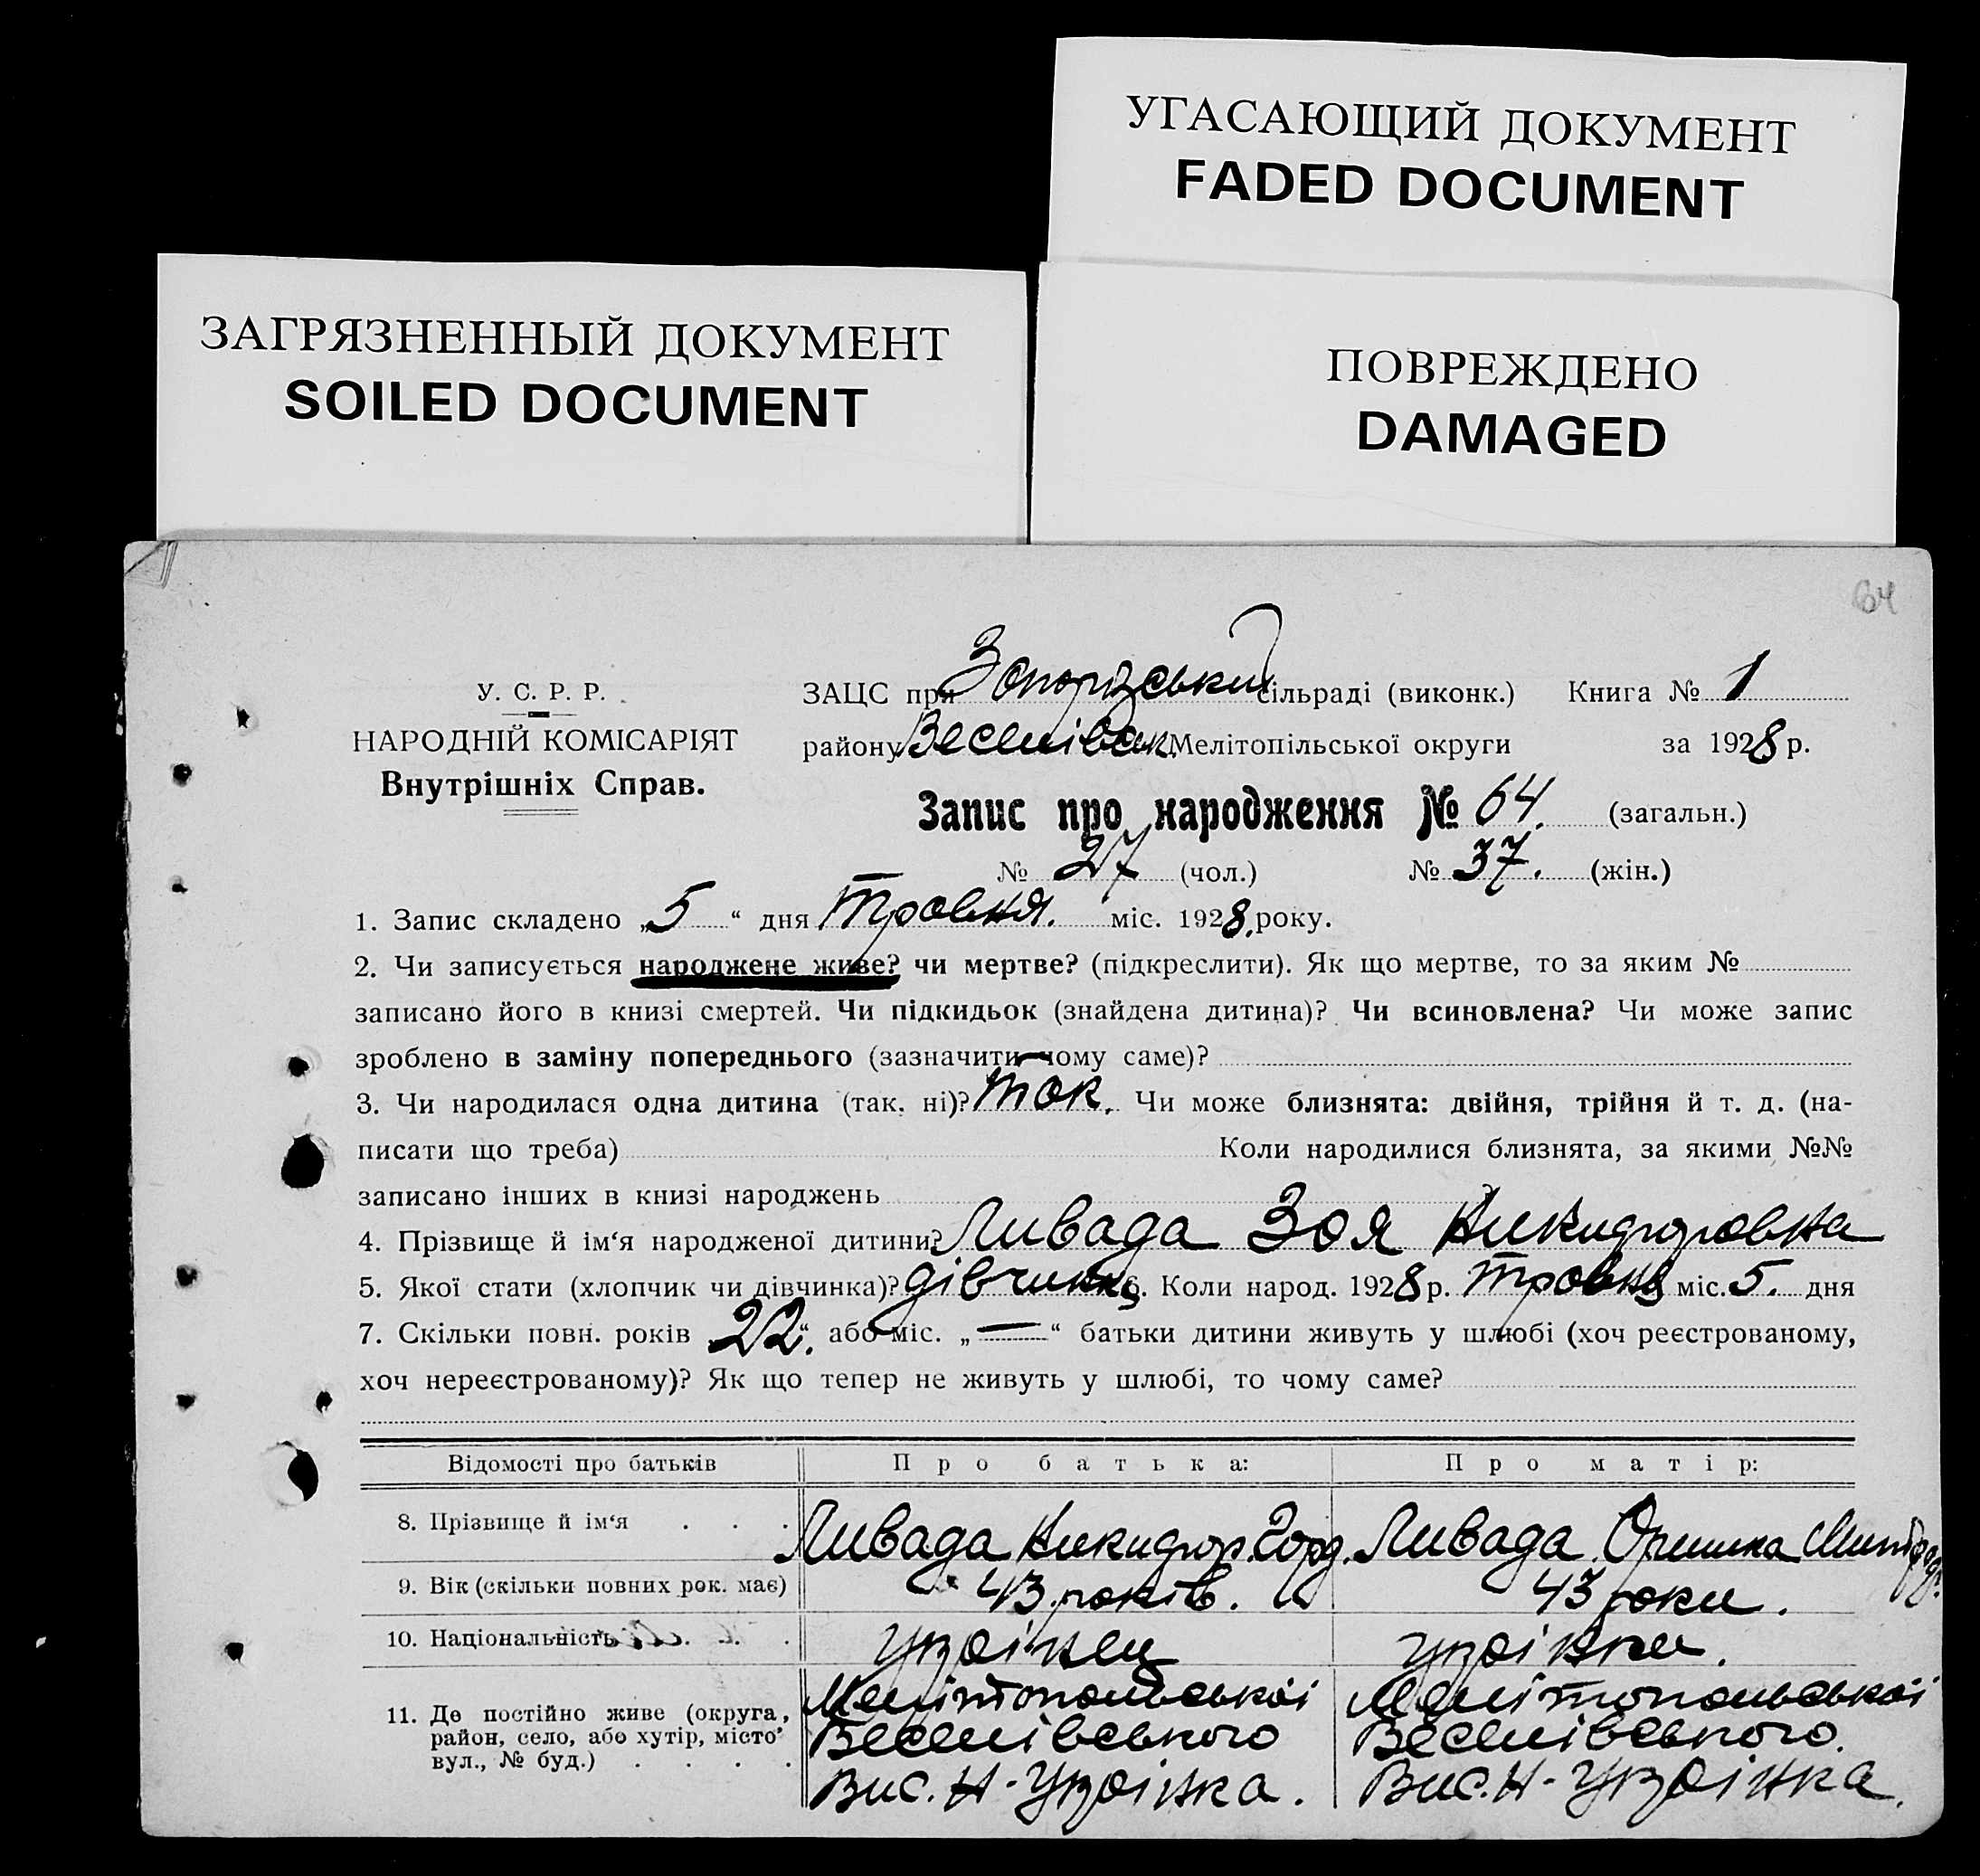 УГАСАЮЩИЙ ДОКУМЕНТ
FADED DOCUMENT
ЗАГРЯЗНЕННЫЙ ДОКУМЕНТ
SOILED DOCUMENT
ПОВРЕЖДЕНО
DAMAGED
64
У. С. Р. Р.
НАРОДНІЙ КОМІСАРІЯТ
Внутрішніх Справ.
ЗАЦС при Запорізський сільраді (виконк.) Книга № 1
району Веселівськ. Мелітопільської округи за 1928 р.
Запис про народження № 64. (загальн.)
№ 27 (чол.) № 37. (жін.)
1. Запис складено „5“ дня Травня. міс. 1928. року.
2. Чи записується народжене живе? чи мертве? (підкреслити). Як що мертве, то за яким №
записано його в книзі смертей. Чи підкидьок (знайдена дитина)? Чи всиновлена? Чи може запис
зроблено в заміну попереднього (зазначити чому саме)?
3. Чи народилася одна дитина (так, ні)? Так. Чи може близнята: двійня, трійня й т. д. (на-
писати що треба) Коли народилися близнята, за якими №№
записано інших в книзі народжень ?
4. Прізвище й ім‘я народженої дитини? Ливада Зоя Никифоровна
5. Якої стати (хлопчик чи дівчинка)? дівчинка 6. Коли народ. 1928 р. Травня міс. 5. дня
7. Скільки повн. років „22.“ або міс. „—“ батьки дитини живуть у шлюбі (хоч реєстрованому,
хоч нереєстрованому)? Як що тепер не живуть у шлюбі, то чому саме?
Відомості про батьків Про батька: Про матір:
8. Прізвище й ім‘я . . . Ливада Никифор. Горд. Ливада Оришка
9. Вік (скільки повних рок. має) 43 років. 43 роки.
10. Національність . . . Українец Українка.
11. Де постійно живе (округа, район, село, або хутір, місто вул., № буд.) . . . .
Мелітопольської Мелітопольської
Веселівського Веселівського.
Вис. Н-Українка. Вис. Н-Українка.